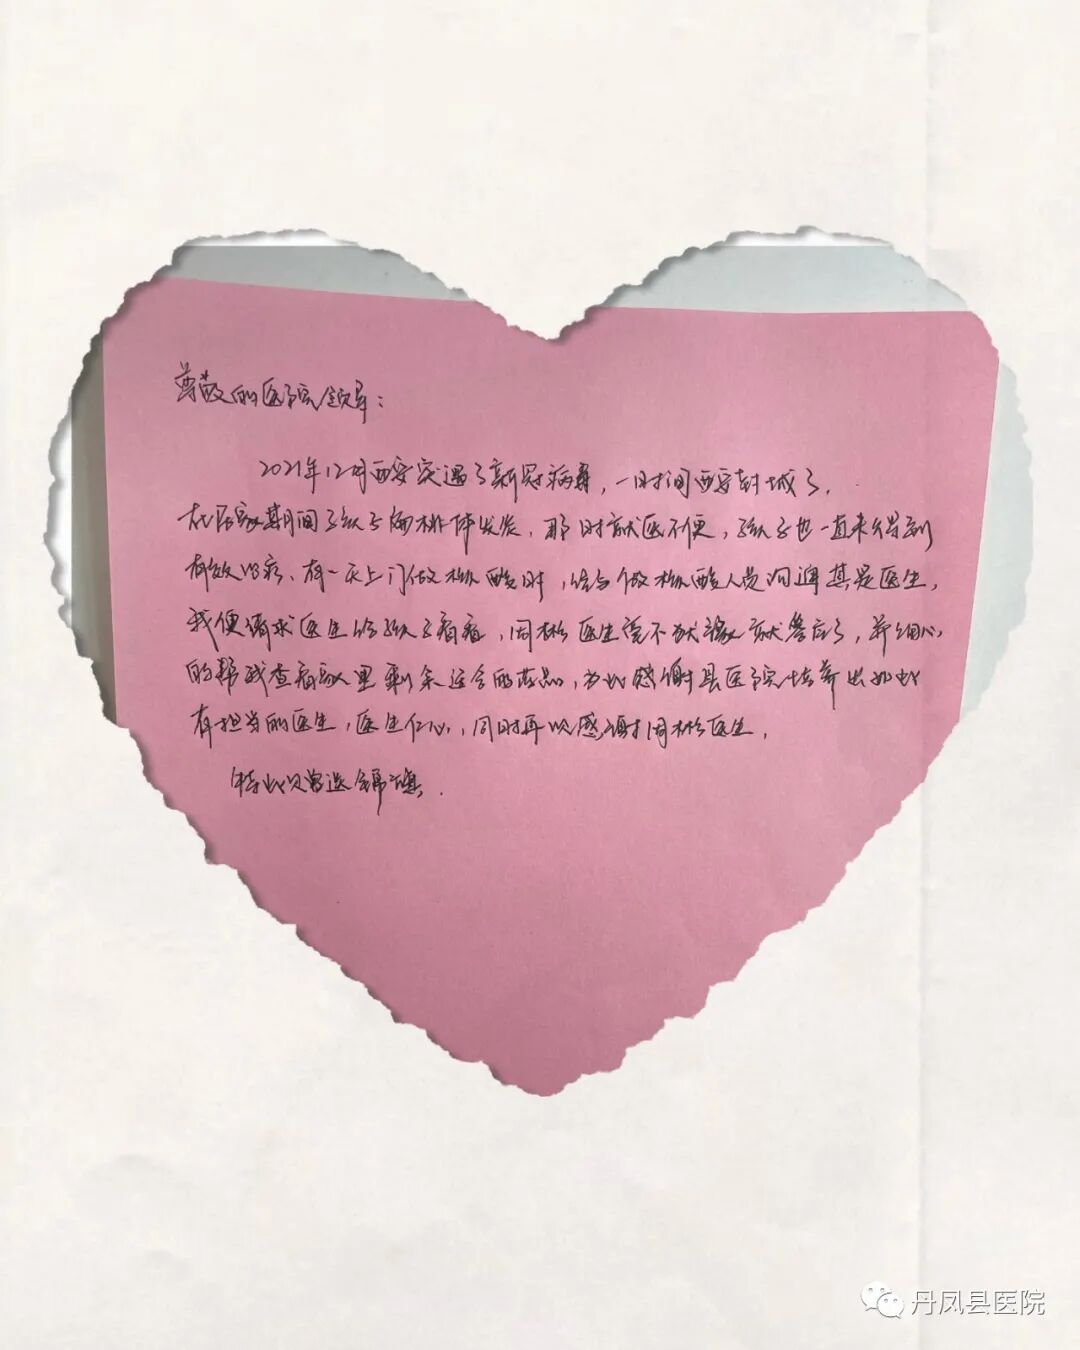 尊敬的医院领导：
2021年12月西安突遇了新冠病毒，一时间西安封城了，
在居家期间孩子扁桃体发炎，那时就医不便，孩子也一直未得到
有效治疗、有一天上门做核酸时，结与做核酸人员沟通其是医生，
我便请求医生给孩子看看，周彬医生毫不犹豫就答应了，并细心
的帮我查看家里剩余适合的药品，为此感谢县医院培养出如此
有担当的医生，医生仁心，同时再次感谢周彬医生，
特此赠送锦旗．
丹凤县医院